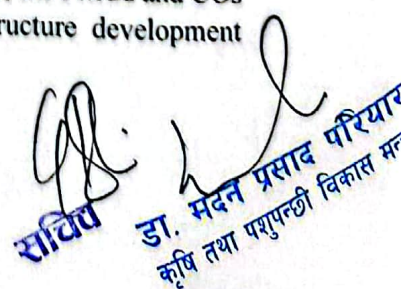 and CGs
ructure development
सचिव
डा. मदन प्रसाद परियार
कृषि तथा पशुपन्छी विकास मन